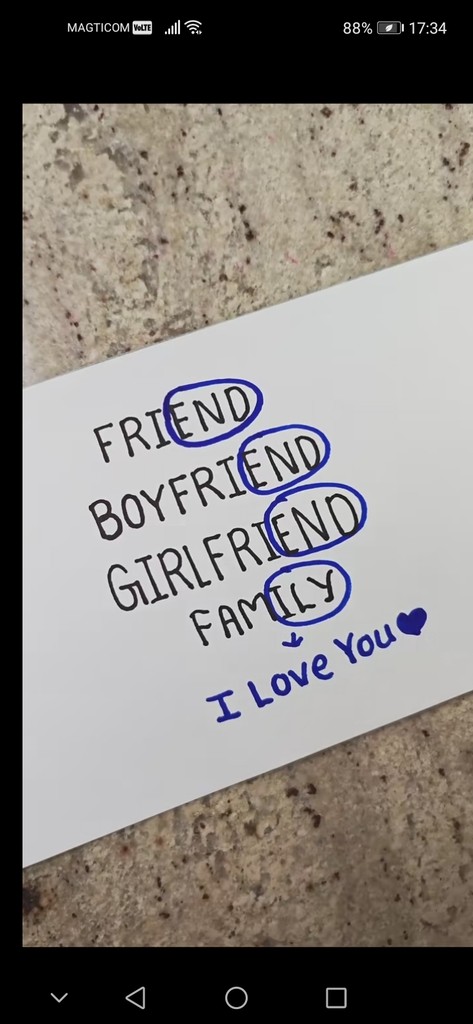 MAGTICOM VoLTE 88% 17:34
FRIEND
BOYFRIEND
GIRLFRIEND
FAMILY
I Love You